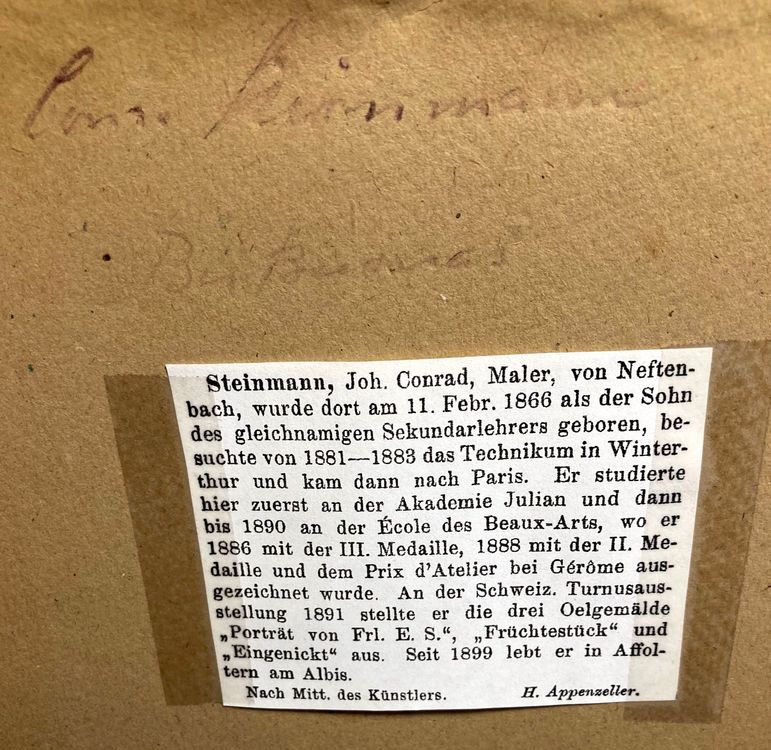 Conr. Steinmann
Steinmann, Joh. Conrad, Maler, von Neften-
bach, wurde dort am 11. Febr. 1866 als der Sohn
des gleichnamigen Sekundarlehrers geboren, be-
suchte von 1881—1883 das Technikum in Winter-
thur und kam dann nach Paris. Er studierte
hier zuerst an der Akademie Julian und dann
bis 1890 an der École des Beaux-Arts, wo er
1886 mit der III. Medaille, 1888 mit der II. Me-
daille und dem Prix d'Atelier bei Gérôme aus-
gezeichnet wurde. An der Schweiz. Turnusaus-
stellung 1891 stellte er die drei Oelgemälde
„Porträt von Frl. E. S.“, „Früchtestück“ und
„Eingenickt“ aus. Seit 1899 lebt er in Affol-
tern am Albis.
Nach Mitt. des Künstlers. H. Appenzeller.